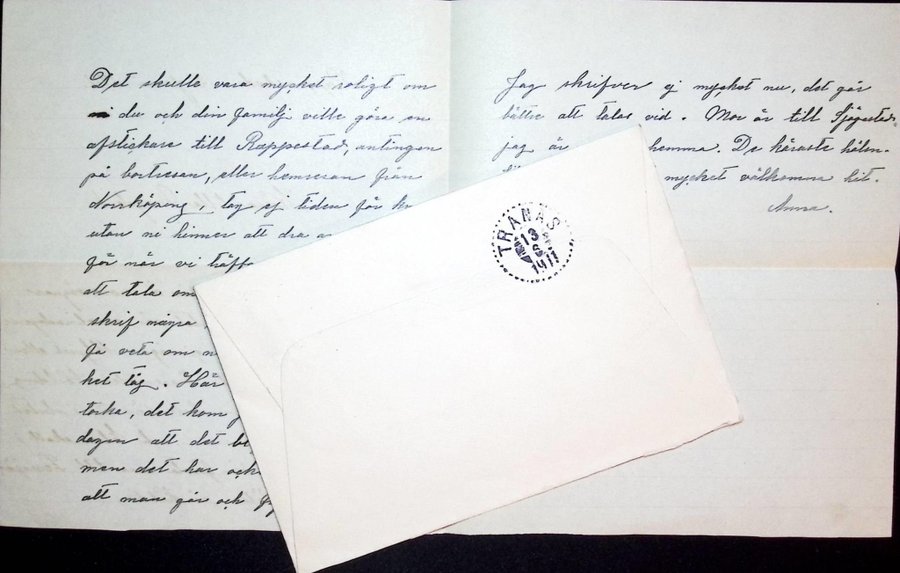 Det skulle vara mycket roligt om
du och din familj ville göra en
afstickare till Rappestad, antingen
på bortresan, eller hemresan från
Norrköping, tag ej tiden för kn
utan ni hinner att dra a
för när vi träffa
att tala om
skrif några
få veta om n
ket tåg. Här
torka, det kom
dagen att det be
men det har ock
att man går och
Jag skrifver ej mycket nu, det går
bättre att talas vid. Mor är till Sjögestad,
jag är hemma. De käraste häls-
mycket välkomna hit.
Anna.
TRANÅS
13 9
1911